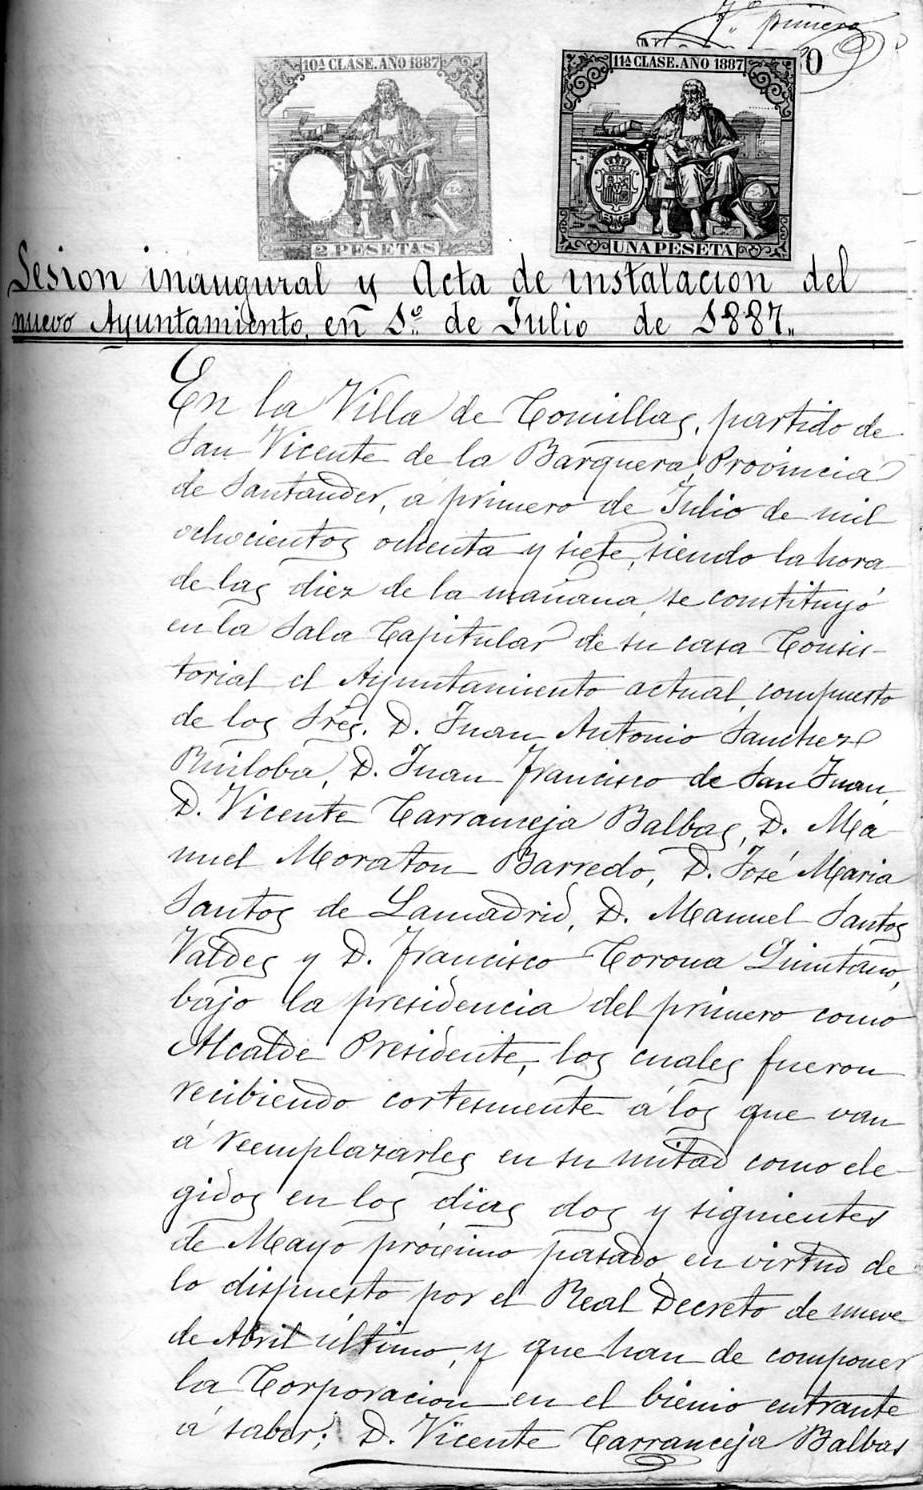 7.º primero
10ª CLASE. AÑO 1887
2 PESETAS
11ª CLASE. AÑO 1887
UNA PESETA
0
Sesion inaugural y Acta de instalacion del
nuevo Ayuntamiento, en 1º de Julio de 1887.
En la Villa de Comillas, partido de
San Vicente de la Barquera, Provincia
de Santander, á primero de Julio de mil
ochocientos ochenta y siete, siendo la hora
de las diez de la mañana, se constituyó
en la Sala Capitular de su casa Consis-
torial el Ayuntamiento actual, compuesto
de los Sres. D. Juan Antonio Sanchez
Ruiloba, D. Juan Francisco de San Juan,
D. Vicente Carranceja Balbas, D. Ma-
nuel Moraton Barredo, D. José Maria
Santos de Lamadrid, D. Manuel Santos
Valdes y D. Francisco Corona Quintano,
bajo la presidencia del primero como
Alcalde Presidente, los cuales fueron
recibiendo cortesmente á los que van
á reemplazarles en su mitad como ele-
gidos en los dias dos y siguientes
de Mayo próximo pasado, en virtud de
lo dispuesto por el Real Decreto de nueve
de Abril último, y que han de componer
la Corporacion en el bienio entrante
á saber: D. Vicente Carranceja Balbas